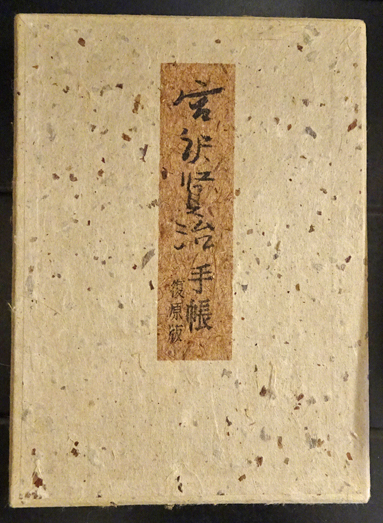 宮沢賢治手帳
復原版